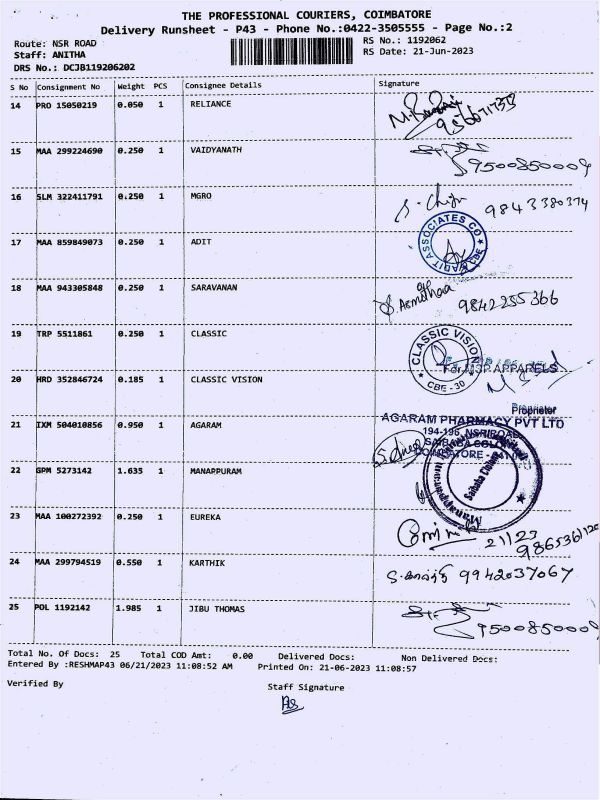 THE PROFESSIONAL COURIERS, COIMBATORE
Delivery Runsheet - P43 - Phone No.:0422-3505555 - Page No.:2
Route: NSR ROAD RS No.: 1192062
Staff: ANITHA RS Date: 21-Jun-2023
DRS No.: DCJB119206202
S No Consignment No Weight PCS Consignee Details Signature
14 PRO 15050219 0.050 1 RELIANCE
15 MAA 299224690 0.250 1 VAIDYANATH
9500850009
16 SLM 322411791 0.250 1 MGRO
9843380374
17 MAA 859849073 0.250 1 ADIT
ASSOCIATES CBE
18 MAA 943305848 0.250 1 SARAVANAN
9842255366
19 TRP 5511861 0.250 1 CLASSIC
CLASSIC VISION
CBE - 30
APPARELS
20 HRD 352846724 0.185 1 CLASSIC VISION
Proprietor
21 IXM 504010856 0.950 1 AGARAM
AGARAM PHARMACY PVT LTD
194-196, NSR ROAD
SAIBABA COLONY
22 GPM 5273142 1.635 1 MANAPPURAM
Saibaba Colony
23 MAA 100272392 0.250 1 EUREKA
24 MAA 299794519 0.550 1 KARTHIK
9942037067
25 POL 1192142 1.985 1 JIBU THOMAS
Total No. Of Docs: 25 Total COD Amt: 0.00 Delivered Docs: Non Delivered Docs:
Entered By :RESHMAP43 06/21/2023 11:08:52 AM Printed On: 21-06-2023 11:08:57
Verified By Staff Signature